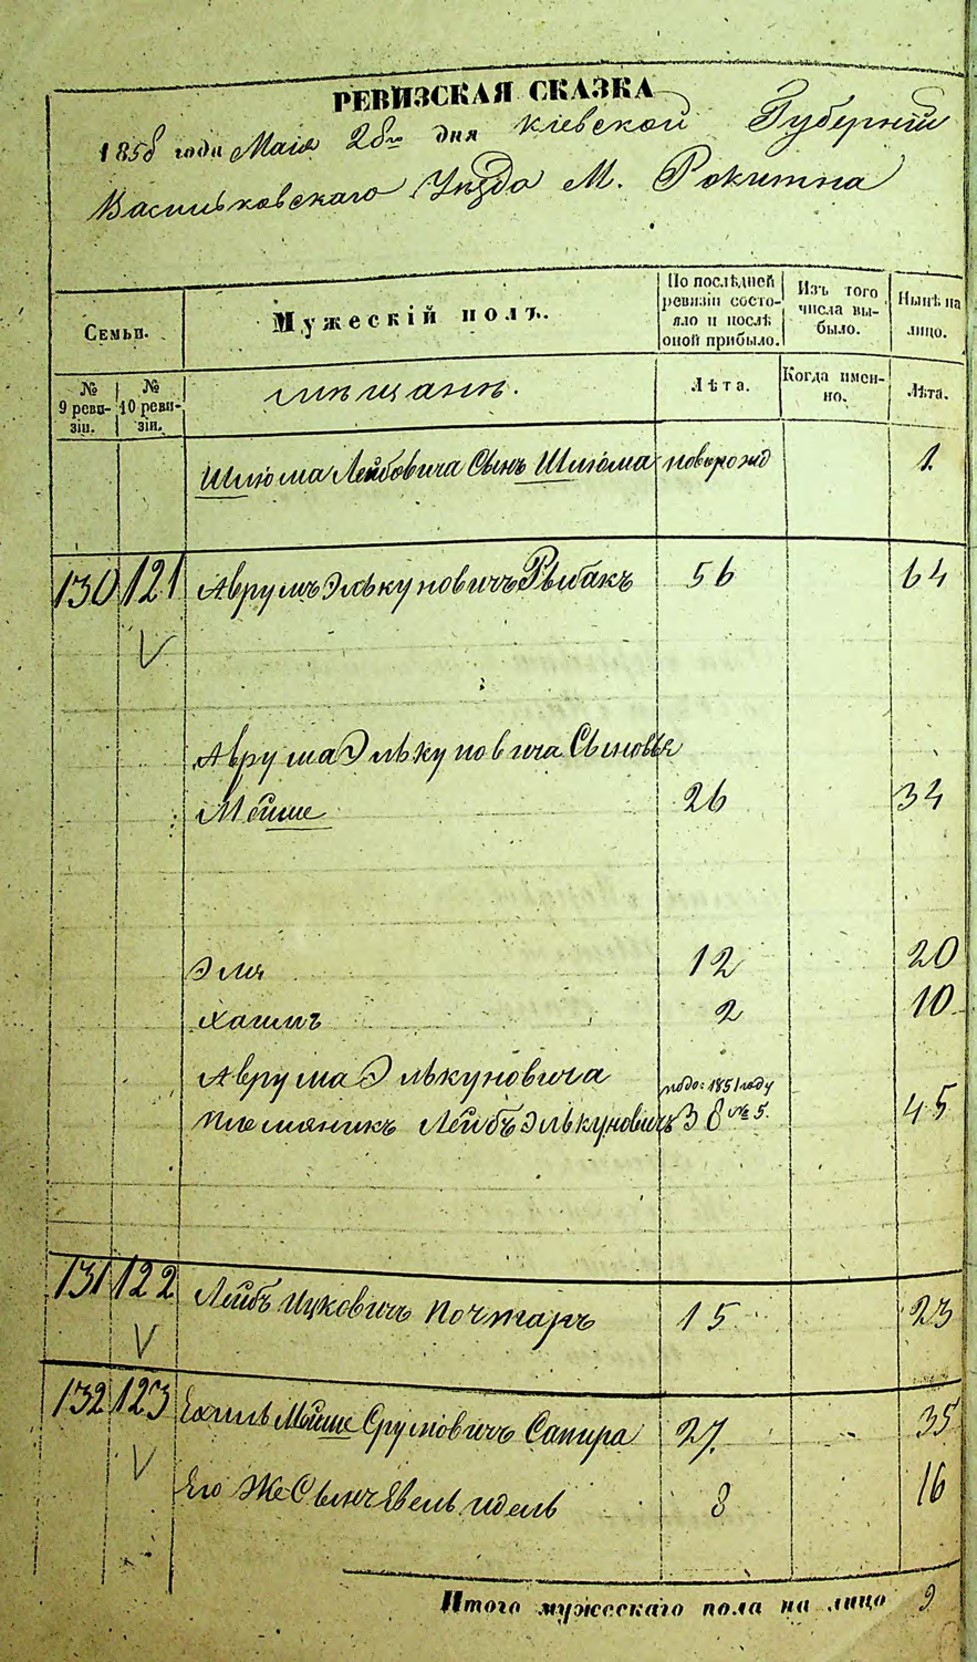 РЕВИЗСКАЯ СКАЗКА
1858 года Маія 28го дня Кіевской Губерніи
Васильковскаго Уѣзда М. Рокитна
Семьи.
Мужескій полъ.
По послѣдней ревизіи состояло и послѣ оной прибыло.
Изъ того числа выбыло.
Нынѣ на лицо.
№ 9 ревизіи.
№ 10 ревизіи.
мѣщанѣ.
Лѣта.
Когда именно.
Лѣта.
Шлiома Лейбовича Сынъ Шлiома новорожд 1.
130 121 Аврумъ Элькуновичъ Рыбакъ 56 64
V
Аврума Элькуновича Сыновья
Мойше 26 34
Эля 12 20
Хаимъ 2 10
Аврума Элькуновича 1851 году
племяникъ Лейбъ Элькуновичъ 38 № 5. 45
131 122 Лейбъ Ицковичъ Почтаръ 15 23
V
132 123 Ехиль Мойше Сруловичъ Сапира 27. 35
V
Его Же Сынъ Евель идель 8 16
Итого мужескаго пола на лицо 9